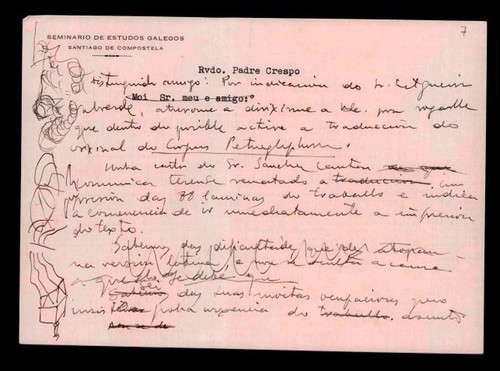 7
SEMINARIO DE ESTUDOS GALEGOS
SANTIAGO DE COMPOSTELA
Rvdo. Padre Crespo
Distinguido amigo: Por indicación do Sr. Filgueira
Moi Sr. meu e amigo:
Valverde, atrévome a dirixirme a Vde. pra rogarlle
que dentro do posible active a traducción do
orixinal do Corpus Petroglyphorum.
Unha carta do Sr. Sánchez Cantón
comunica terense rematado a traducción
impresión das 80 láminas do traballo e indica
a conveniencia de ir inmediatamente a impresión
do texto.
Sabemos das dificultades que
na versión latina, a causa
a que se debe que
das suas moitas ocupacións pero
insis urxencia do traballo, asunto